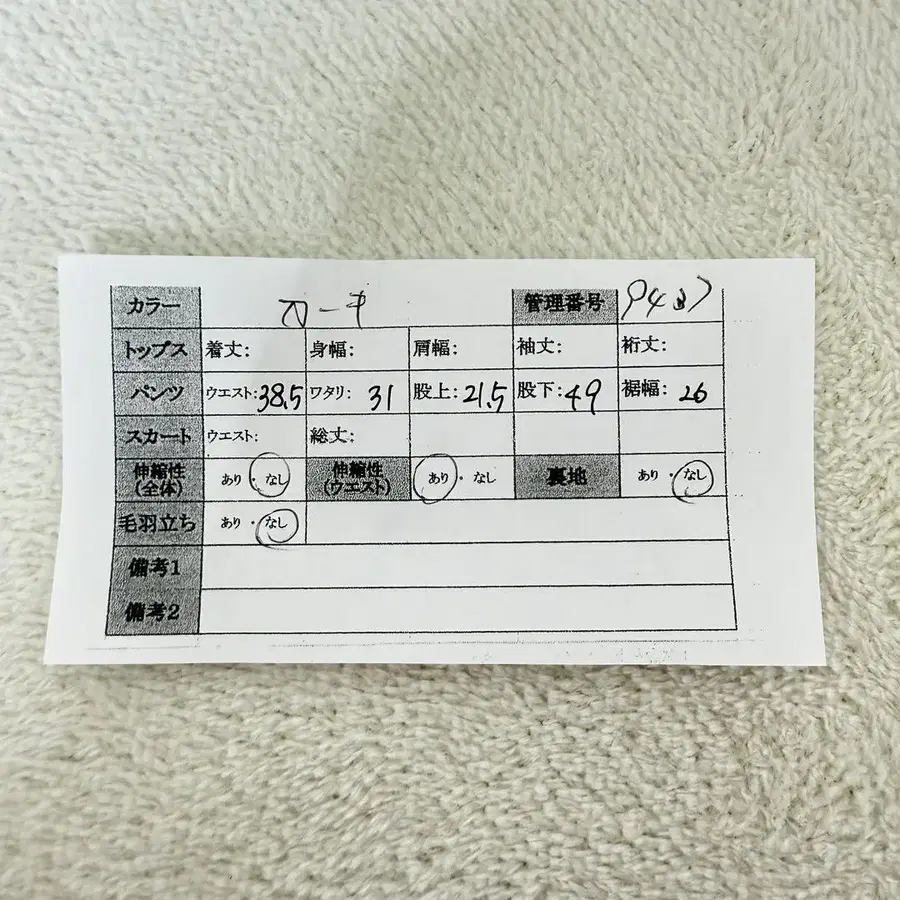 カラー カーキ 管理番号 9437
トップス 着丈: 身幅: 肩幅: 袖丈: 裄丈:
パンツ ウエスト:38.5 ワタリ: 31 股上:21.5 股下:49 裾幅: 26
スカート ウエスト: 総丈:
伸縮性(全体) あり・なし 伸縮性(ウエスト) あり・なし 裏地 あり・なし
毛羽立ち あり・なし
備考1
備考2